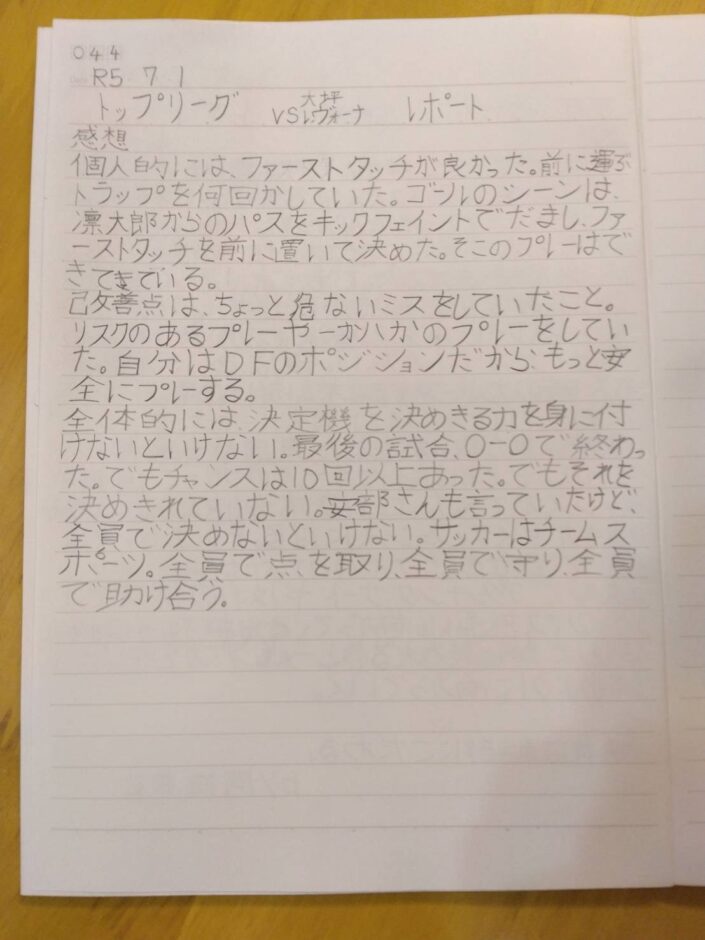 044
R5 7 1
トップリーグ VS大坪レヴォーナ レポート
感想
個人的には、ファーストタッチが良かった。前に運ぶ
トラップを何回かしていた。ゴールのシーンは、
凛大郎からのパスをキックフェイントでだまし、ファ
ーストタッチを前に置いて決めた。そこのプレーはで
きてきている。
改善点は、ちょっと危ないミスをしていたこと。
リスクのあるプレーや一か八かのプレーをしてい
た。自分はDFのポジションだから、もっと安
全にプレーする。
全体的には、決定機を決めきる力を身に付
けないといけない。最後の試合、0-0で終わっ
た。でもチャンスは10回以上あった。でもそれを
決めきれていない。安部さんも言っていたけど、
全員で決めないといけない。サッカーはチームス
ポーツ。全員で点を取り、全員で守り、全員
で助け合う。